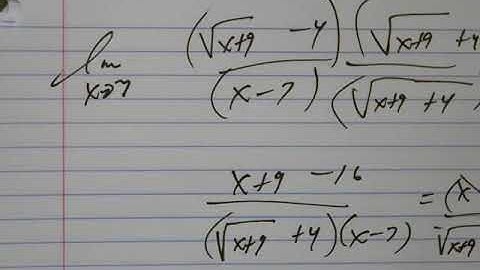 lim x→7 (√x+9 -4)(√x+9 +4 / (x-7)(√x+9 +4)
x+9 -16 / (√x+9 +4)(x-7) = (x / √x+9